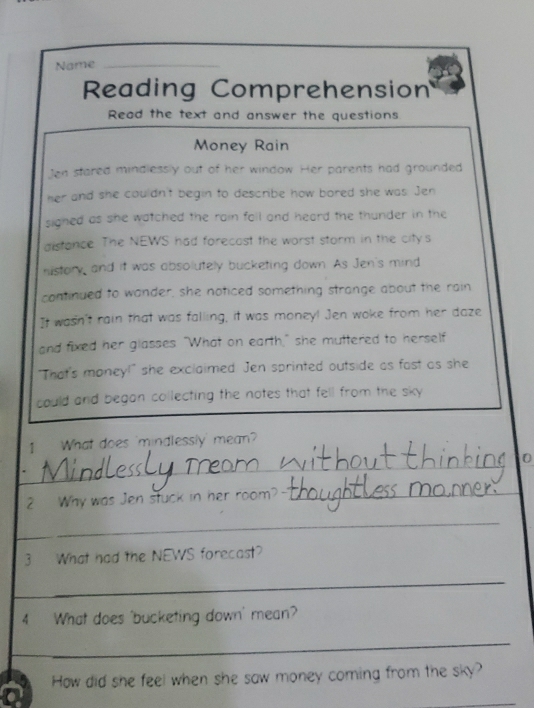 Name
Reading Comprehension
Read the text and answer the questions
Money Rain
Jen stared mindlessly out of her window. Her parents had grounded
her and she couldn't begin to describe how bored she was. Jen
sighed as she watched the rain fall and heard the thunder in the
distance. The NEWS had forecast the worst storm in the city's
history, and it was absolutely bucketing down. As Jen's mind
continued to wander, she noticed something strange about the rain.
It wasn't rain that was falling, it was money! Jen woke from her daze
and fixed her glasses. "What on earth," she muttered to herself.
"That's money!" she exclaimed. Jen sprinted outside as fast as she
could and began collecting the notes that fell from the sky.
1 What does 'mindlessly' mean?
Mindlessly mean without thinking o
2 Why was Jen stuck in her room? - thoughtless manner.
3 What had the NEWS forecast?
4 What does 'bucketing down' mean?
How did she feel when she saw money coming from the sky?